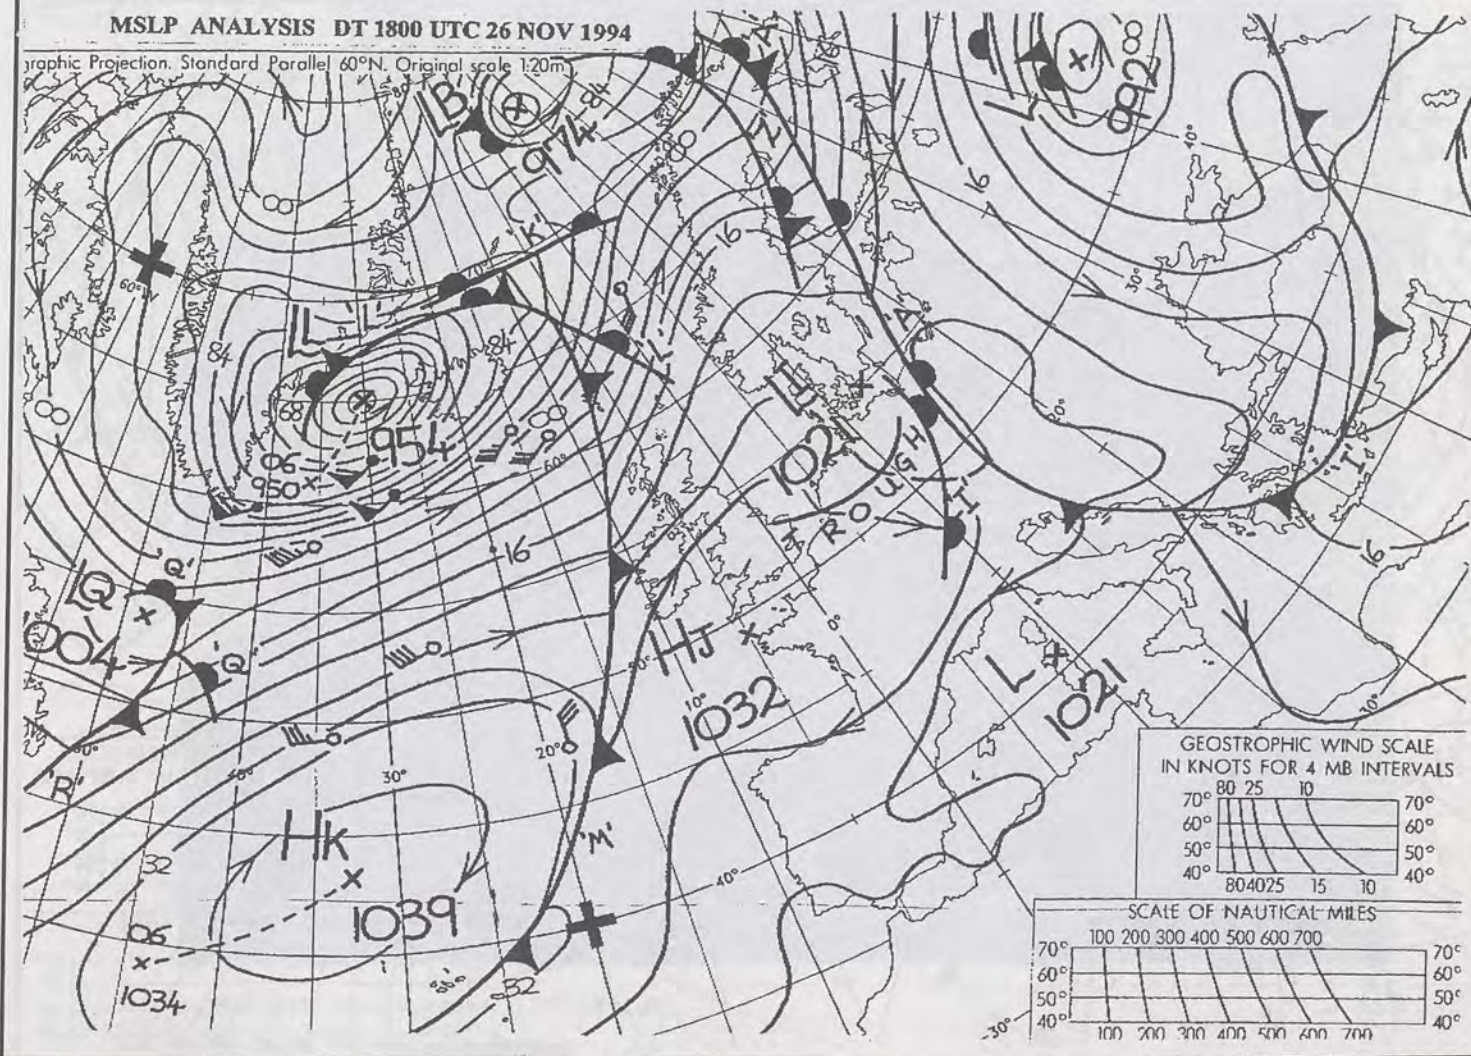 MSLP ANALYSIS DT 1800 UTC 26 NOV 1994
graphic Projection. Standard Parallel 60°N. Original scale 1:20m
'A'
LB
974
84
88
16
'Z'
L
992
8
40°
16
30°
'K'
70°
60°W
8
LL
'L'
84
84
'L'
68
954
06
950
8
8
60°
16
'A'
H
1021
TROUGH
'I'
'I'
16
10°
0°
LQ
'Q'
1004
'Q'
'R'
HJ
1032
50°
10°
L
1021
20°
30°
40°
HK
1039
32
06
1034
'M'
32
40°
30°
GEOSTROPHIC WIND SCALE
IN KNOTS FOR 4 MB INTERVALS
80 25 10
70° 70°
60° 60°
50° 50°
40° 40°
80 40 25 15 10
SCALE OF NAUTICAL MILES
100 200 300 400 500 600 700
70° 70°
60° 60°
50° 50°
40° 40°
100 200 300 400 500 600 700